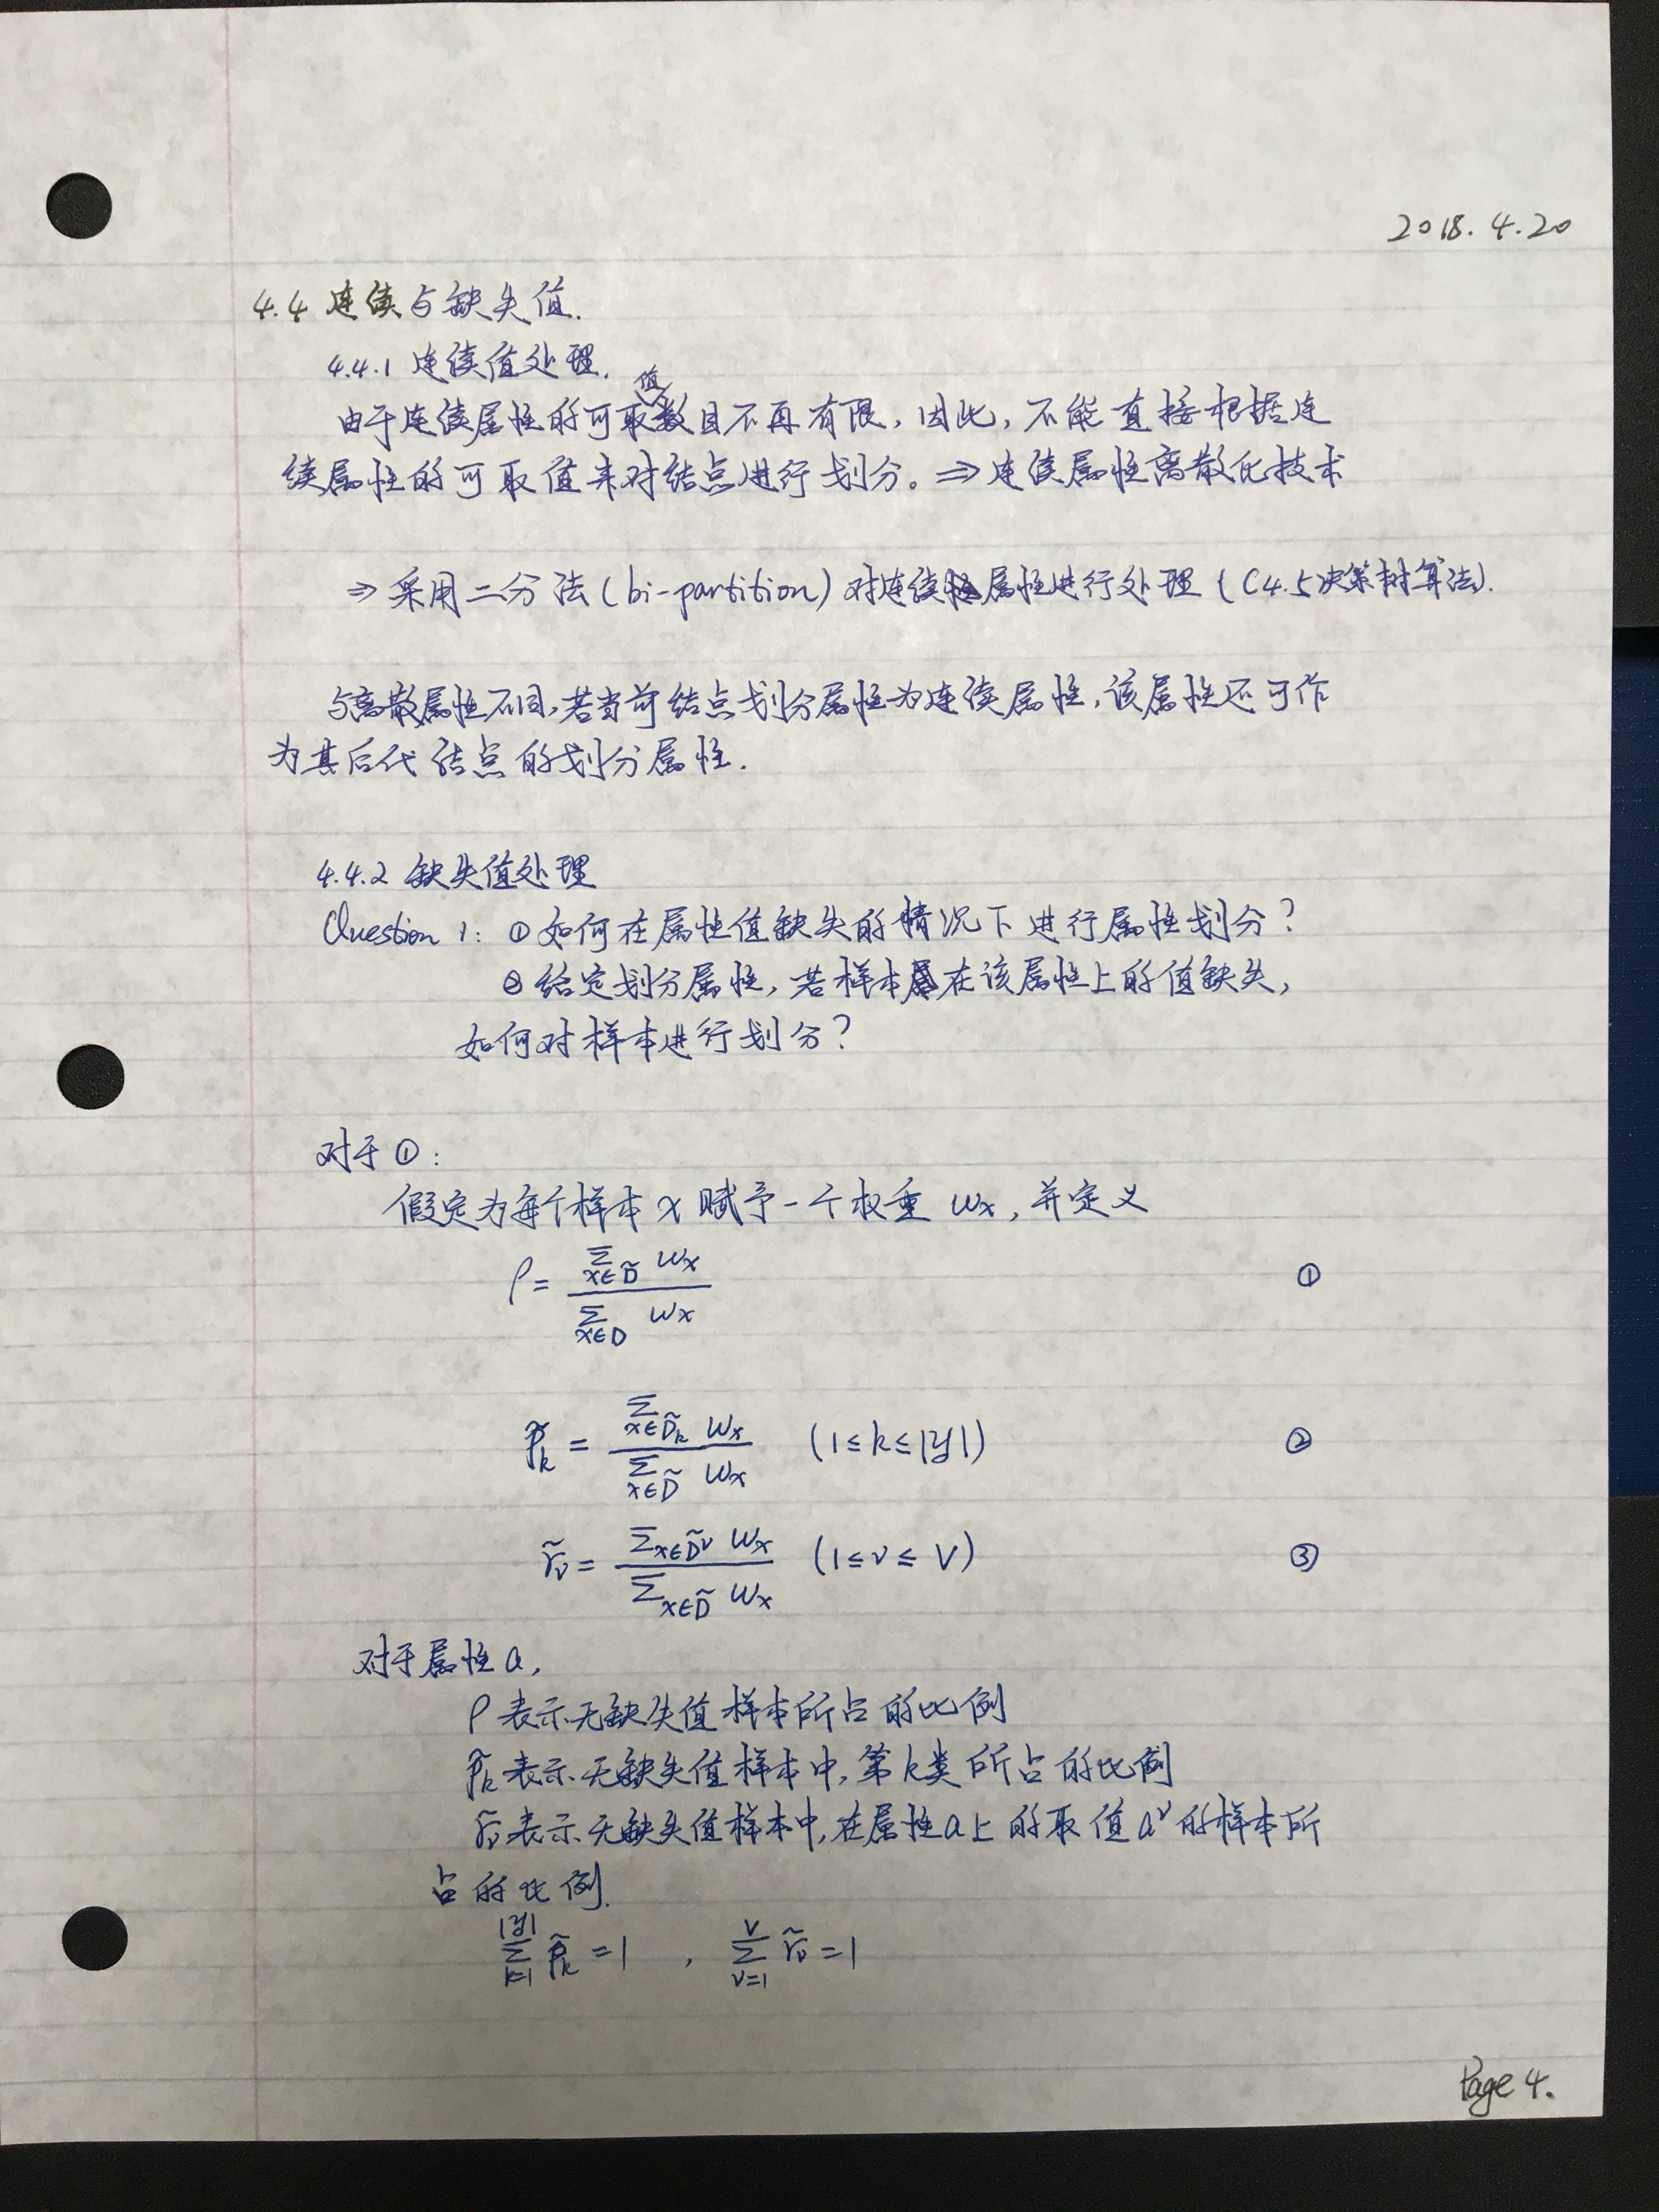 2018.4.20
4.4 连续与缺失值.
4.4.1 连续值处理.
由于连续属性的可取值数目不再有限, 因此, 不能直接根据连
续属性的可取值来对结点进行划分。⇒ 连续属性离散化技术
⇒ 采用二分法 (bi-partition) 对连续属性进行处理 (C4.5决策树算法).
与离散属性不同, 若当前结点划分属性为连续属性, 该属性还可作
为其后代结点的划分属性.
4.4.2 缺失值处理
Question 1: ① 如何在属性值缺失的情况下进行属性划分?
② 给定划分属性, 若样本在该属性上的值缺失,
如何对样本进行划分?
对于①:
假定为每个样本 x 赋予一个权重 wx, 并定义
ρ = \frac{\sum_{x∈\tilde{D}} w_x}{\sum_{x∈D} w_x} ①
\tilde{p}_k = \frac{\sum_{x∈\tilde{D}_k} w_x}{\sum_{x∈\tilde{D}} w_x} (1≤k≤|y|) ②
\tilde{r}_v = \frac{\sum_{x∈\tilde{D}^v} w_x}{\sum_{x∈\tilde{D}} w_x} (1≤v≤V) ③
对于属性 a,
ρ 表示无缺失值样本所占的比例
\tilde{p}_k 表示无缺失值样本中, 第k类所占的比例
\tilde{r}_v 表示无缺失值样本中, 在属性a上的取值a^v的样本所
占的比例.
\sum_{k=1}^{|y|} \tilde{p}_k = 1 , \sum_{v=1}^{V} \tilde{r}_v = 1
Page 4.